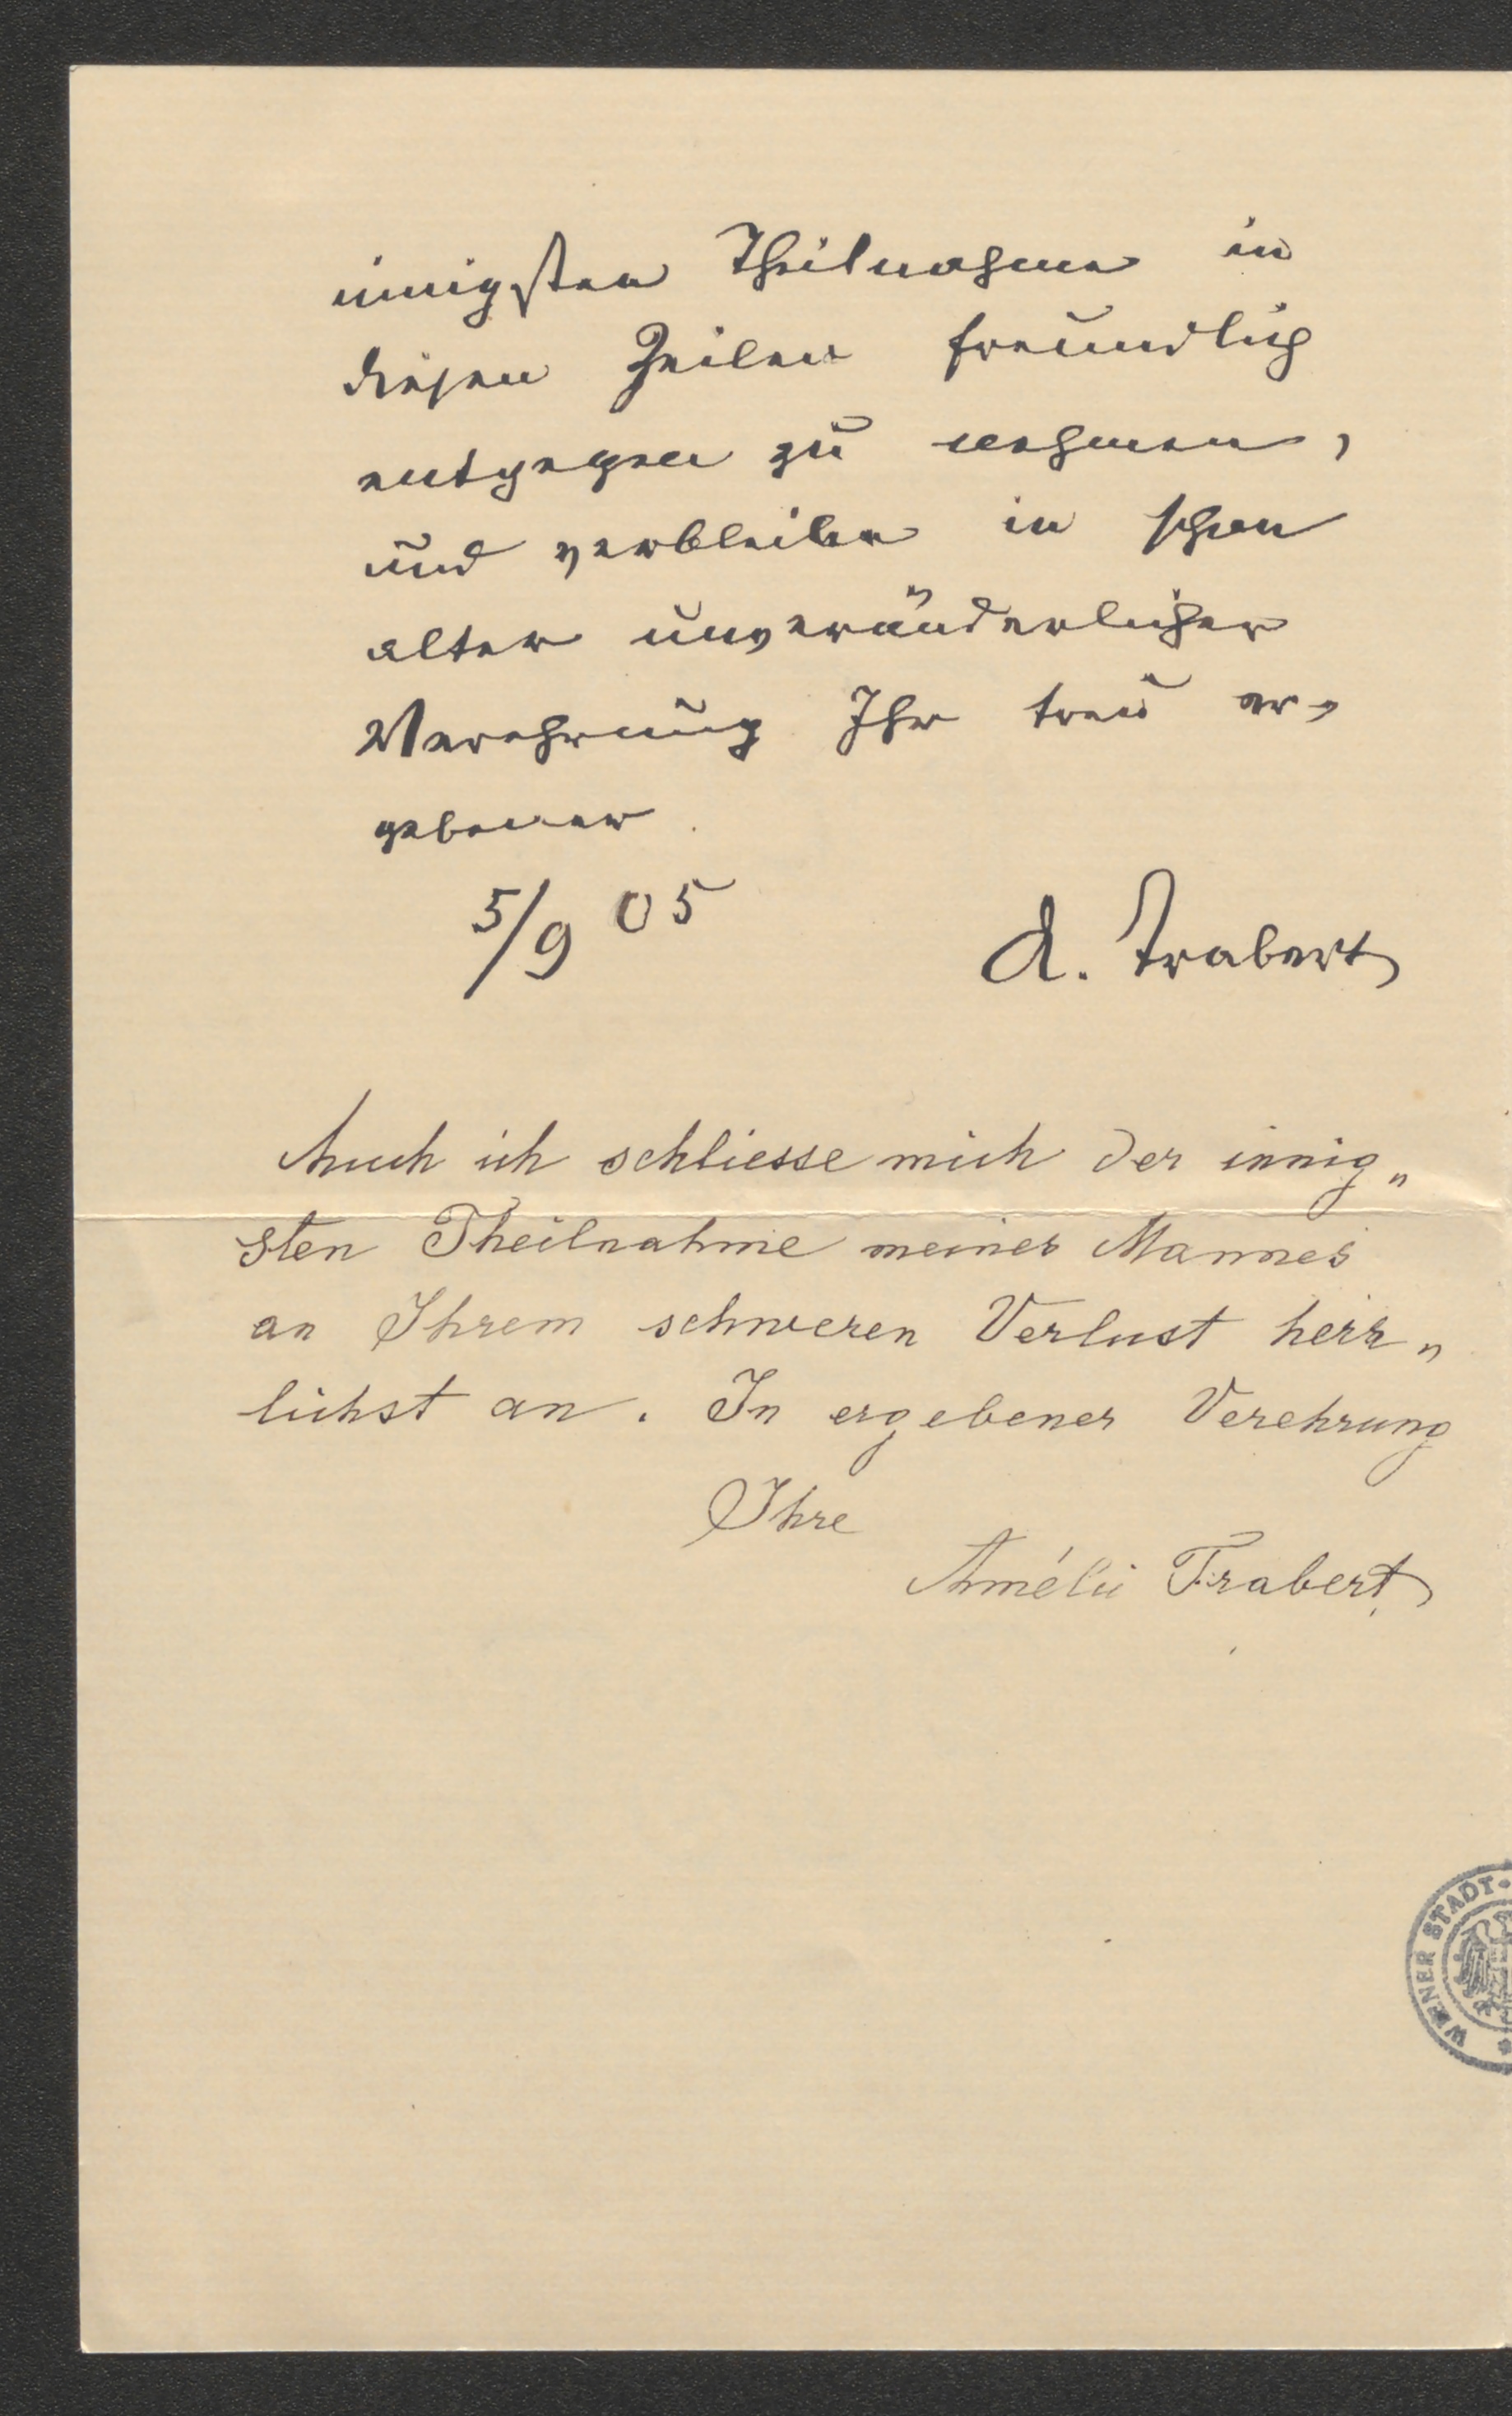 innigsten Theilnahme in
diesen Zeilen freundlich
entgegen zu nehmen,
und verbleibe in schon
alter unveränderlicher
Verehrung Ihr treu er-
gebener
5/9 05
A. Trabert
Auch ich schliesse mich der innig„
sten Theilnahme meines Mannes
an Ihrem schweren Verlust herz„
lichst an. In ergebener Verehrung
Ihre
Amélie Trabert
WIENER STADT-